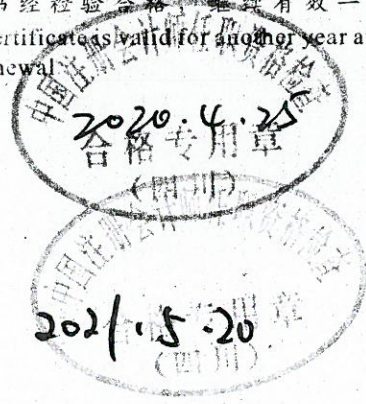 书经检验合格,继续有效一
ertificate is valid for another year a
newal
中国注册会计师任职资格检查
2020.4.25
合格专用章
(四川)
中国注册会计师任职资格检查
2021.5.20
合格专用章
(四川)